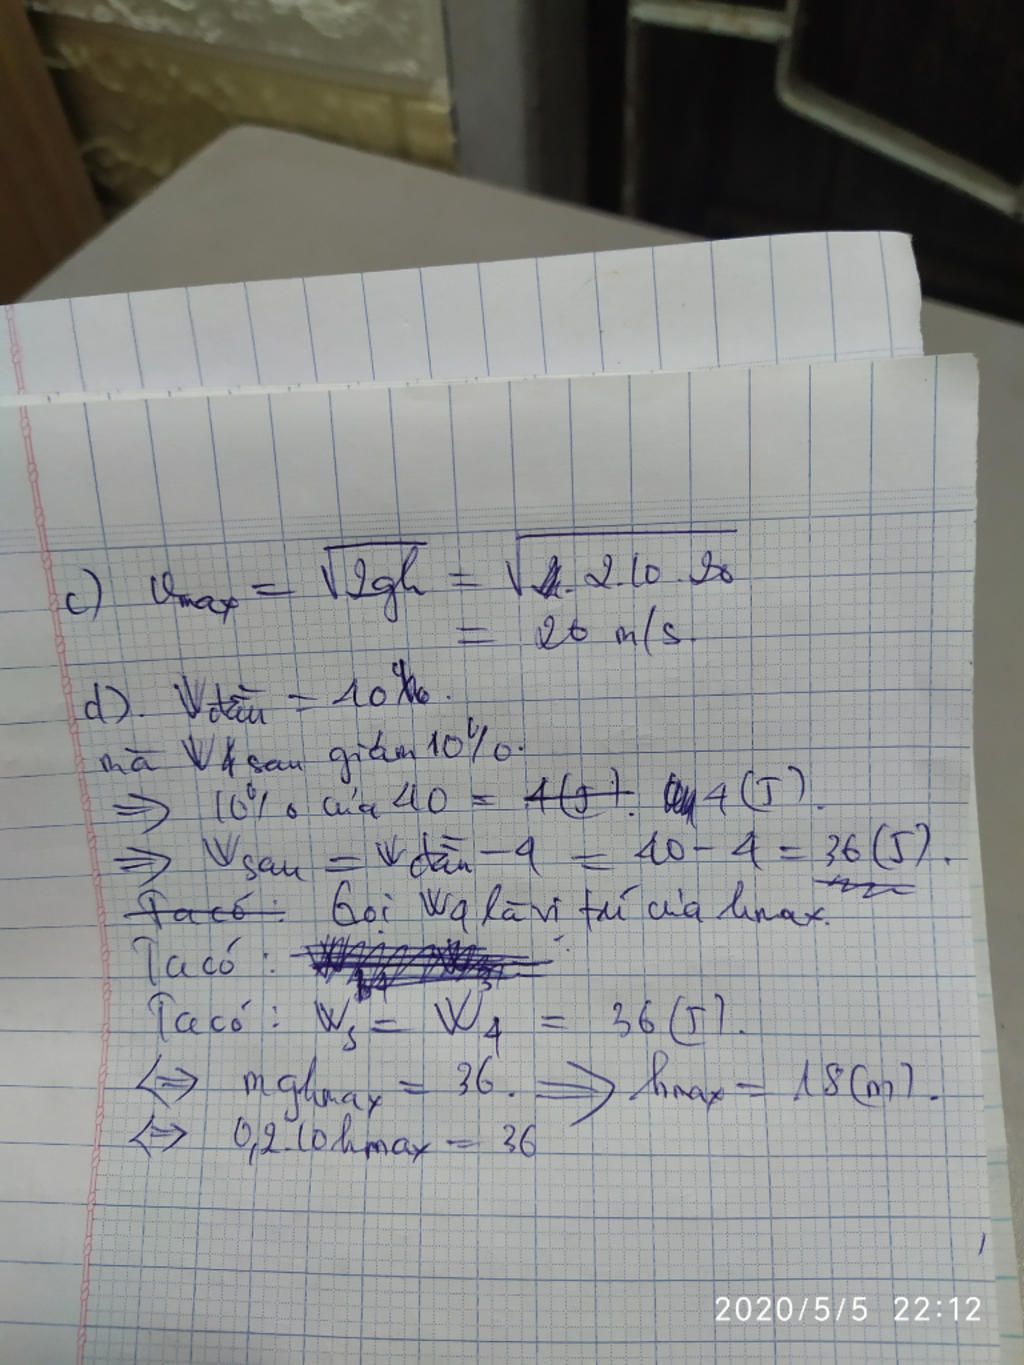 c) vmax = √2gh = √2.10.20
= 20 m/s.
d). Wđầu = 40
mà W sau giảm 10%.
⇒ 10% của 40 = 4(J). 4(J).
⇒ Wsau = Wđầu - 4 = 40 - 4 = 36(J).
Ta có: Gọi W4 là vị trí của hmax.
Ta có:
Ta có: W3 = W4 = 36(J).
⇔ mghmax = 36. ⇒ hmax = 18(m).
⇔ 0,2.10hmax = 36
2020/5/5 22:12